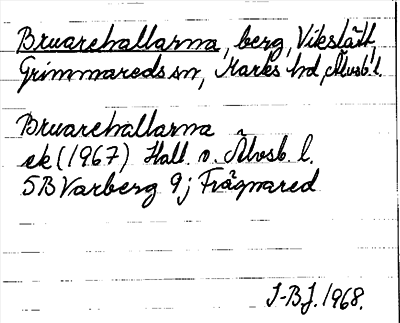 Bruarehallarna, berg, Vikslätt,
Grimmareds sn, Marks hd, Älvsb. l.
Bruarehallarna
ek (1967) Hall. o. Älvsb. l.
5B Varberg 9j Frägnared
J-BJ. 1968.